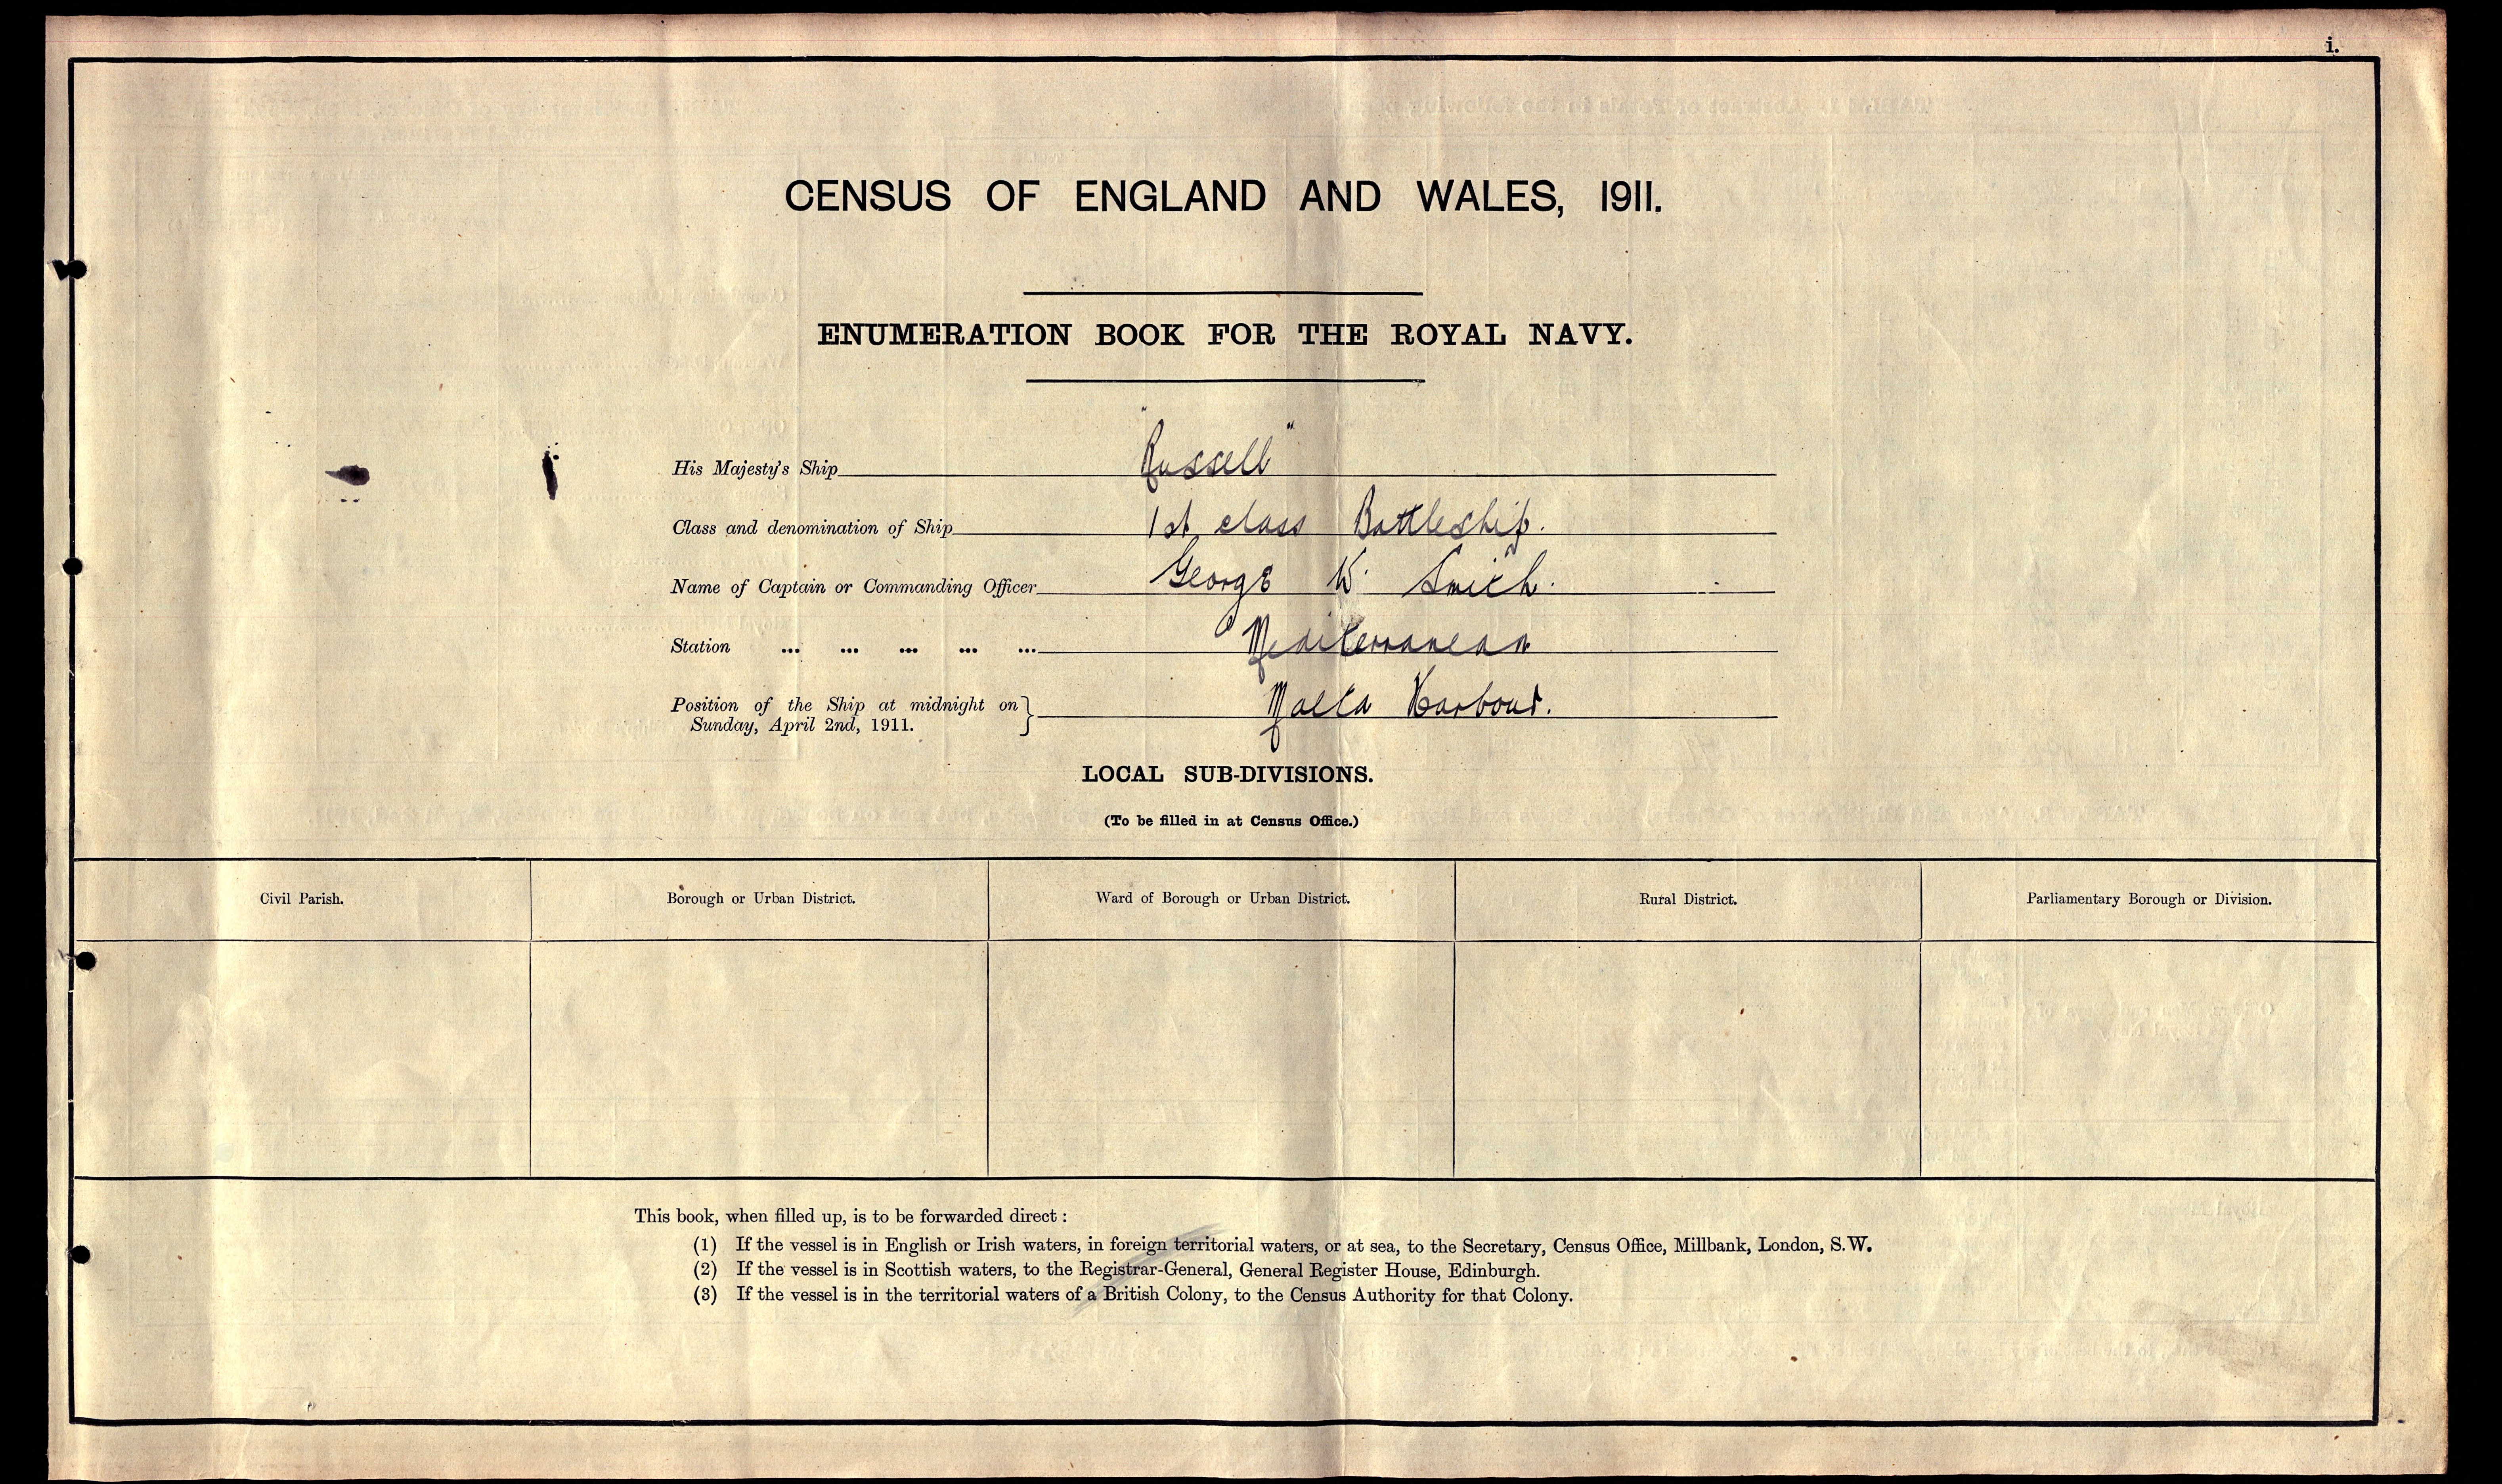 i.
CENSUS OF ENGLAND AND WALES, 1911.
ENUMERATION BOOK FOR THE ROYAL NAVY.
His Majesty's Ship "Russell"
Class and denomination of Ship 1st class Battleship.
Name of Captain or Commanding Officer George W. Smith.
Station ... ... ... ... ... Mediterranean
Position of the Ship at midnight on } Malta Harbour.
Sunday, April 2nd, 1911.
LOCAL SUB-DIVISIONS.
(To be filled in at Census Office.)
Civil Parish. Borough or Urban District. Ward of Borough or Urban District. Rural District. Parliamentary Borough or Division.
This book, when filled up, is to be forwarded direct :
(1) If the vessel is in English or Irish waters, in foreign territorial waters, or at sea, to the Secretary, Census Office, Millbank, London, S.W.
(2) If the vessel is in Scottish waters, to the Registrar-General, General Register House, Edinburgh.
(3) If the vessel is in the territorial waters of a British Colony, to the Census Authority for that Colony.